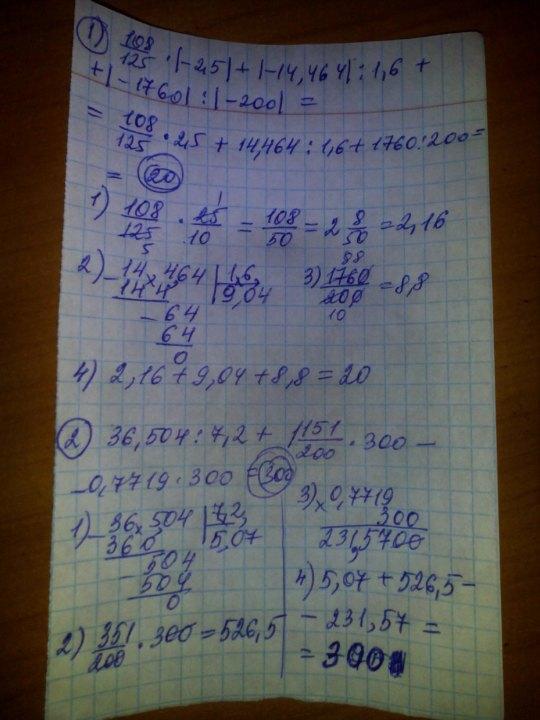 1) 108/125 · |-2,5| + |-14,464| : 1,6 +
+ |-1760| : |-200| =
= 108/125 · 2,5 + 14,464 : 1,6 + 1760 : 200 =
= 20
1) 108/125 · 25/10 = 108/50 = 2 8/50 = 2,16
5 1
2) 14,464 | 1,6
144 9,04
- 64
64
0
3) 1760/200 = 8,8
88
10
4) 2,16 + 9,04 + 8,8 = 20
2 36,504 : 7,2 + 1 151/200 · 300 -
- 0,7719 · 300 = 300
1) 36,504 | 7,2
360 5,07
- 504
504
0
2) 351/200 · 300 = 526,5
3) × 0,7719
300
231,5700
4) 5,07 + 526,5 -
- 231,57 =
= 300